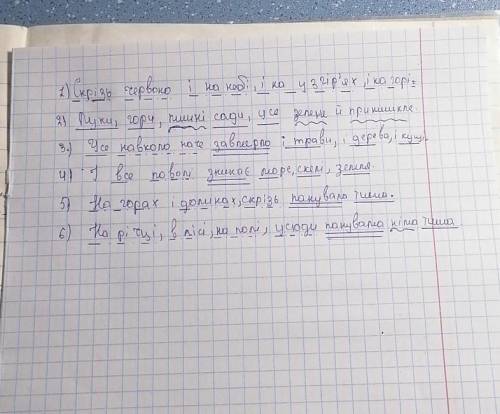 1) Скрізь червоно і на небі, і на узгір'ях, і на горі.
2) Луки, гори, пишні сади, усе зелене й принишкле.
3.) Усе навколо наче завмерло і трави, і дерева, і кущі.
4) І все поволі зникає море, скелі, земля.
5) На горах і долинах, скрізь панувала тиша.
6) На річці, в лісі, на полі, усюди панувала німа тиша